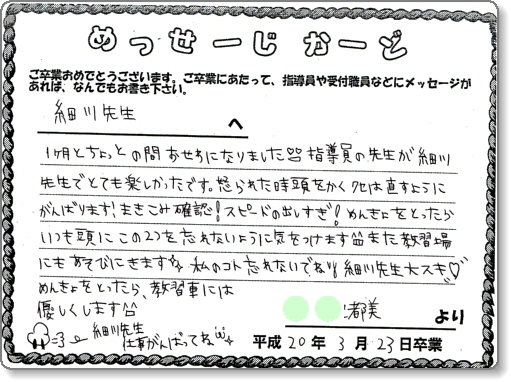 めっせーじかーど
ご卒業おめでとうございます。ご卒業にあたって、指導員や受付職員などにメッセージが
あれば、なんでもお書き下さい。
細川先生
へ
1ヶ月とちょっとの間おせわになりました 指導員の先生が細川
先生でとても楽しかったです。怒られた時頭をかくクセは直すように
がんばります!まきこみ確認!スピードの出しすぎ!めんきょをとったら
いつも頭にこの2つを忘れないように気をつけます また教習場
にもあそびにきます 私のコト忘れないでね!! 細川先生大スキ♡
めんきょをとったら、教習車には
優しくします
都美 より
細川先生
仕事がんばってね
平成20年3月23日卒業